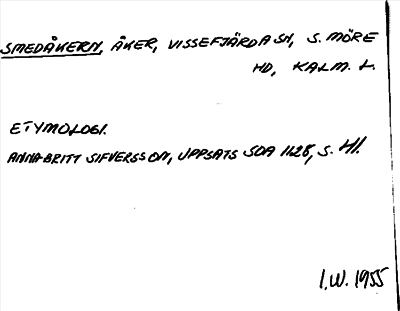 SMEDÅKERN, ÅKER, VISSEFJÄRDA SN, S. MÖRE
HD, KALM. L.
ETYMOLOGI.
ANNA-BRITT SIFVERSSON, UPPSATS SOA 1128, S. 41.
I.W. 1955